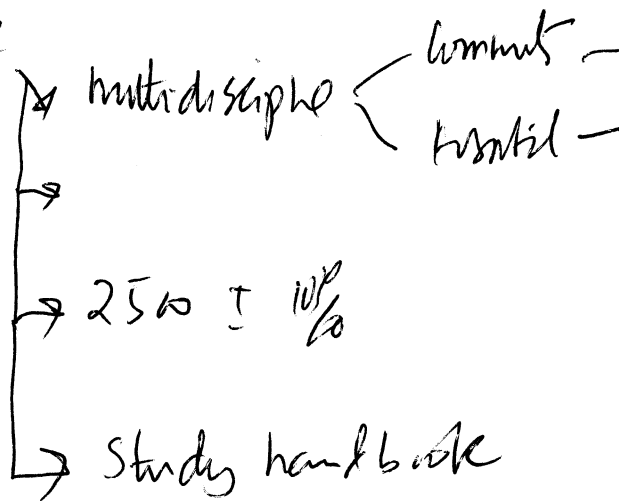 multidiscipline
community
hospital
2500 ± 10%
Study handbook